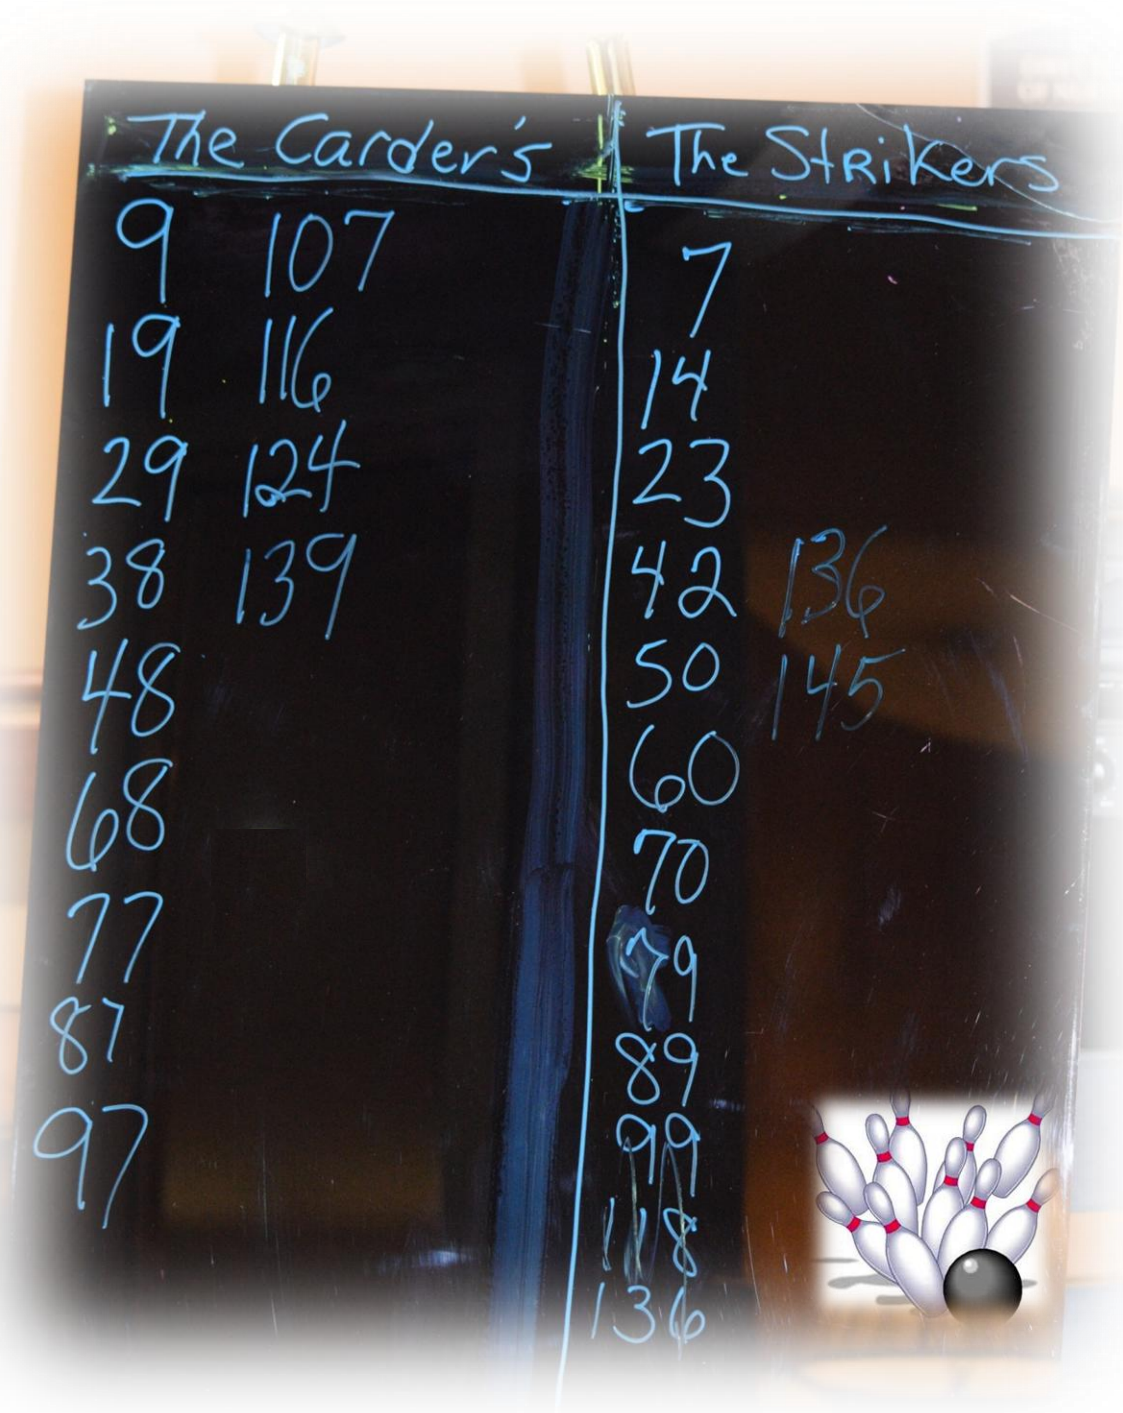 The Carder's
9 107
19 116
29 124
38 139
48
68
77
87
97
The Strikers
7
14
23
42 136
50 145
60
70
79
89
99
118
136